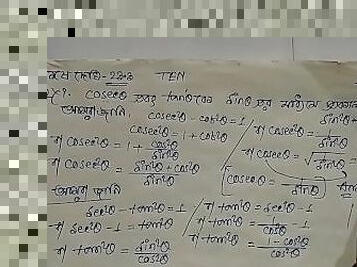 TEN
cosec²θ এবং tan²θ কে sinθ এর
আমরা জানি,
cosec²θ - cot²θ = 1
cosec²θ = 1 + cot²θ
বা cosec²θ = 1 + cos²θ/sin²θ
বা cosec²θ = sin²θ + cos²θ/sin²θ
বা cosec²θ = 1/sin²θ
বা cosecθ = √1/sin²θ
cosecθ = 1/sinθ
আমরা জানি
sec²θ - tan²θ = 1
বা sec²θ - 1 = tan²θ
বা tan²θ = sin²θ/cos²θ
বা tan²θ = sec²θ - 1
বা tan²θ = 1/cos²θ - 1
বা tan²θ = 1 - cos²θ/cos²θ